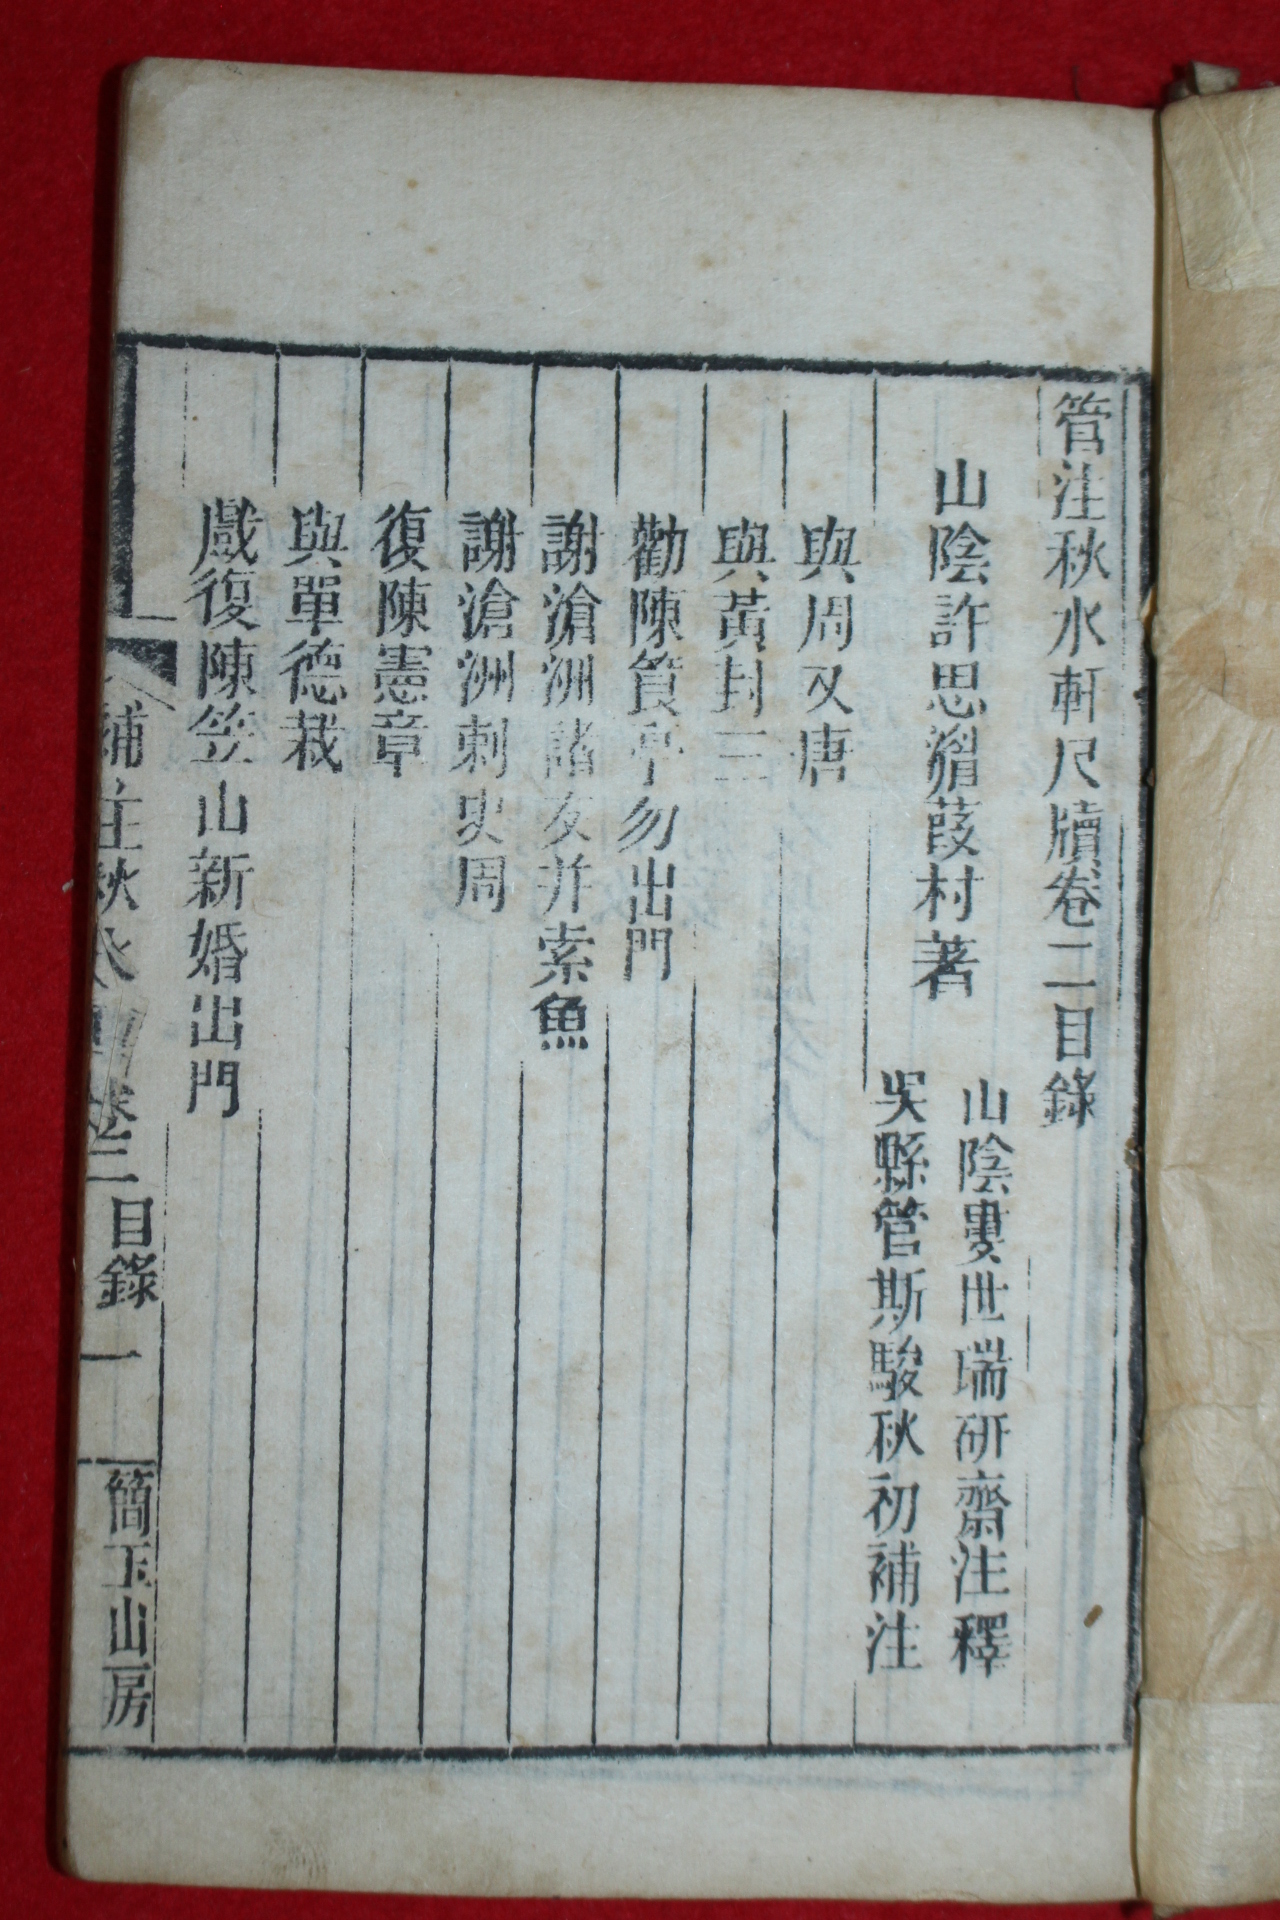 管注秋水軒尺牘卷二目錄
山陰許思湄葭村著
山陰婁世瑞研齋注釋
吳縣管斯駿秋初補注
與周又唐
與黃封三
勸陳篔亭勿出門
謝滄洲諸友并索魚
謝滄洲刺史周
復陳憲章
與單德栽
戲復陳笠山新婚出門
補注秋水軒卷二目錄 一 簡玉山房